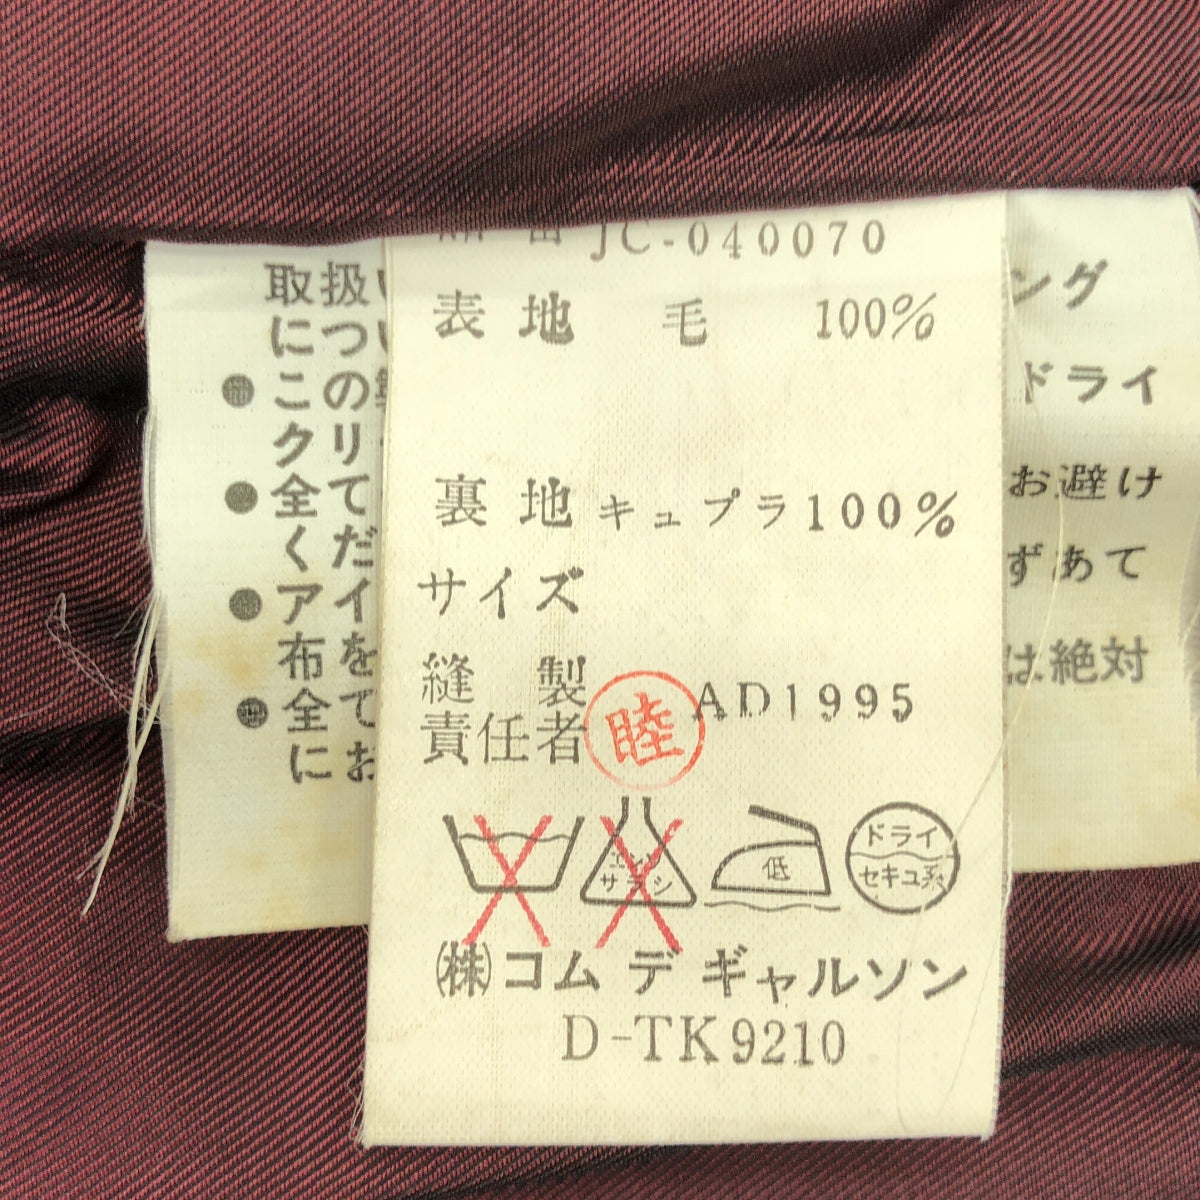 JC-040070
表地 毛 100%
裏地 キュプラ100%
サイズ
縫製
責任者 睦 AD1995
エンソサラシ
低
ドライ
セキユ系
㈱コム デ ギャルソン
D-TK9210
取扱い
につい
●この
クリ
●全て
くだ
●アイ
布を
●全て
にお
ング
ドライ
お避け
ずあて
は絶対